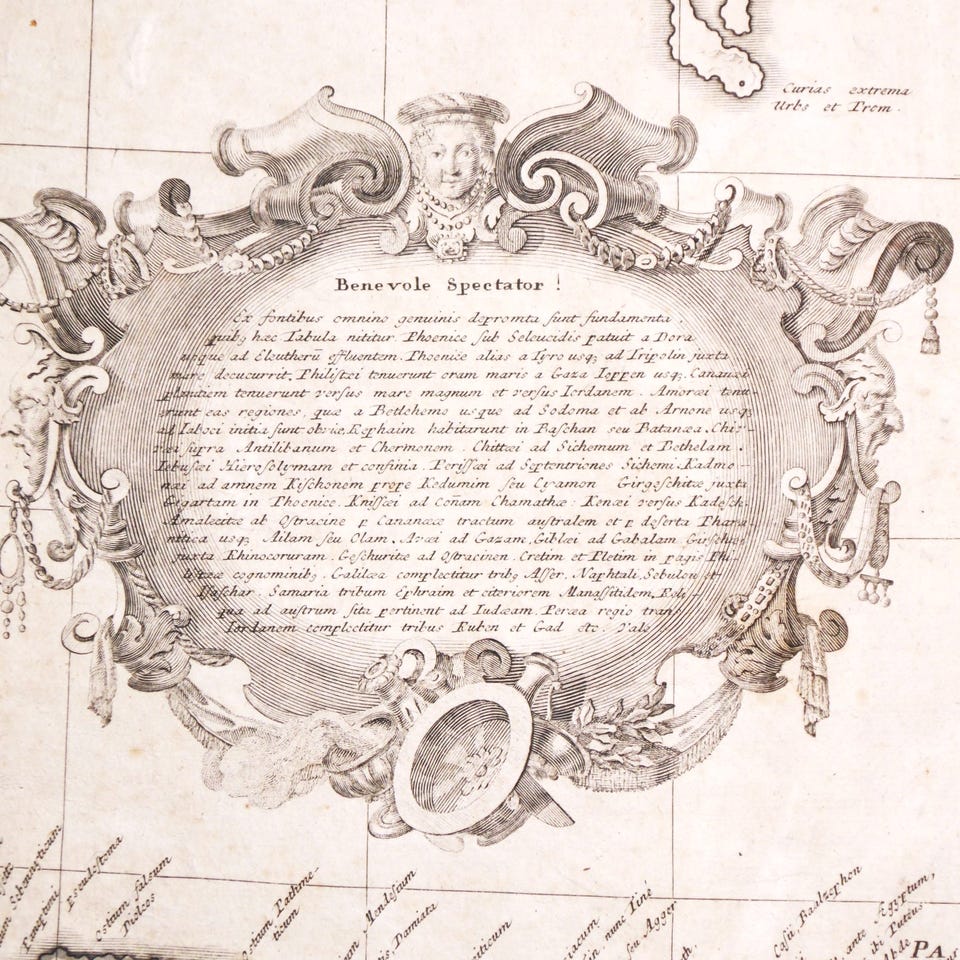 Curias extrema
Urbs et Prom.
Benevole Spectator !
Ex fontibus omnino genuinis depromta sunt fundamenta,
quibꝫ hæc Tabula nititur. Phoenice sub Seleucidis patuit a Dora
usque ad Eleutherū effluentem. Phoenice alias a Tyro usqꝫ ad Tripolin juxta
mare decucurrit. Philistæi tenuerunt oram maris a Gaza Ioppen usqꝫ. Cananæi
tenuerunt versus mare magnum et versus Iordanem. Amoræi tenu
erunt eas regiones, quæ a Betlehemo usque ad Sodoma et ab Arnone usqꝫ
ad Iaboci initia sunt obviæ. Rephaim habitarunt in Baschan seu Batanæa. Chiv-
væi supra Antilibanum et Chermonem. Chittæi ad Sichemum et Bethelam.
Iebusæi Hierosolymam et confinia. Perissæi ad Septentriones Sichemi. Kadmo-
næi ad amnem Kischonem prope Kedumim seu Cyamon. Girgeschitæ juxta
Gegartam in Phoenice. Knissæi ad Cōnam Chamathæ: Kenæi versus Kadesch.
Amalecitæ ab Ostracine p Cananææ tractum australem et p deserta Phara-
nitica usqꝫ Ailam seu Olam. Avæi ad Gazam, Giblæi ad Gabalam. Girschæi
juxta Rhinocoruram. Geschuritæ ad Ostracinen. Cretim et Pletim in pagis Phi
listææ cognominibꝫ. Galilæa complectitur tribꝫ Asser, Naphtali, Sebulon et
Isaschar. Samaria tribum Ephraim et citeriorem Manassitidem. Reli-
qua ad austrum sita pertinent ad Iudæam. Peræa regio trans
Iordanem complectitur tribus Ruben et Gad etc. Vale
Pseudostoma
ostium falsum
Diolcos
ostium Pathme-
ticum
Mendesium
Damiata
nunc Tiné
seu Agger
Casii, Baalzephon
ante Ægyptum,
PA